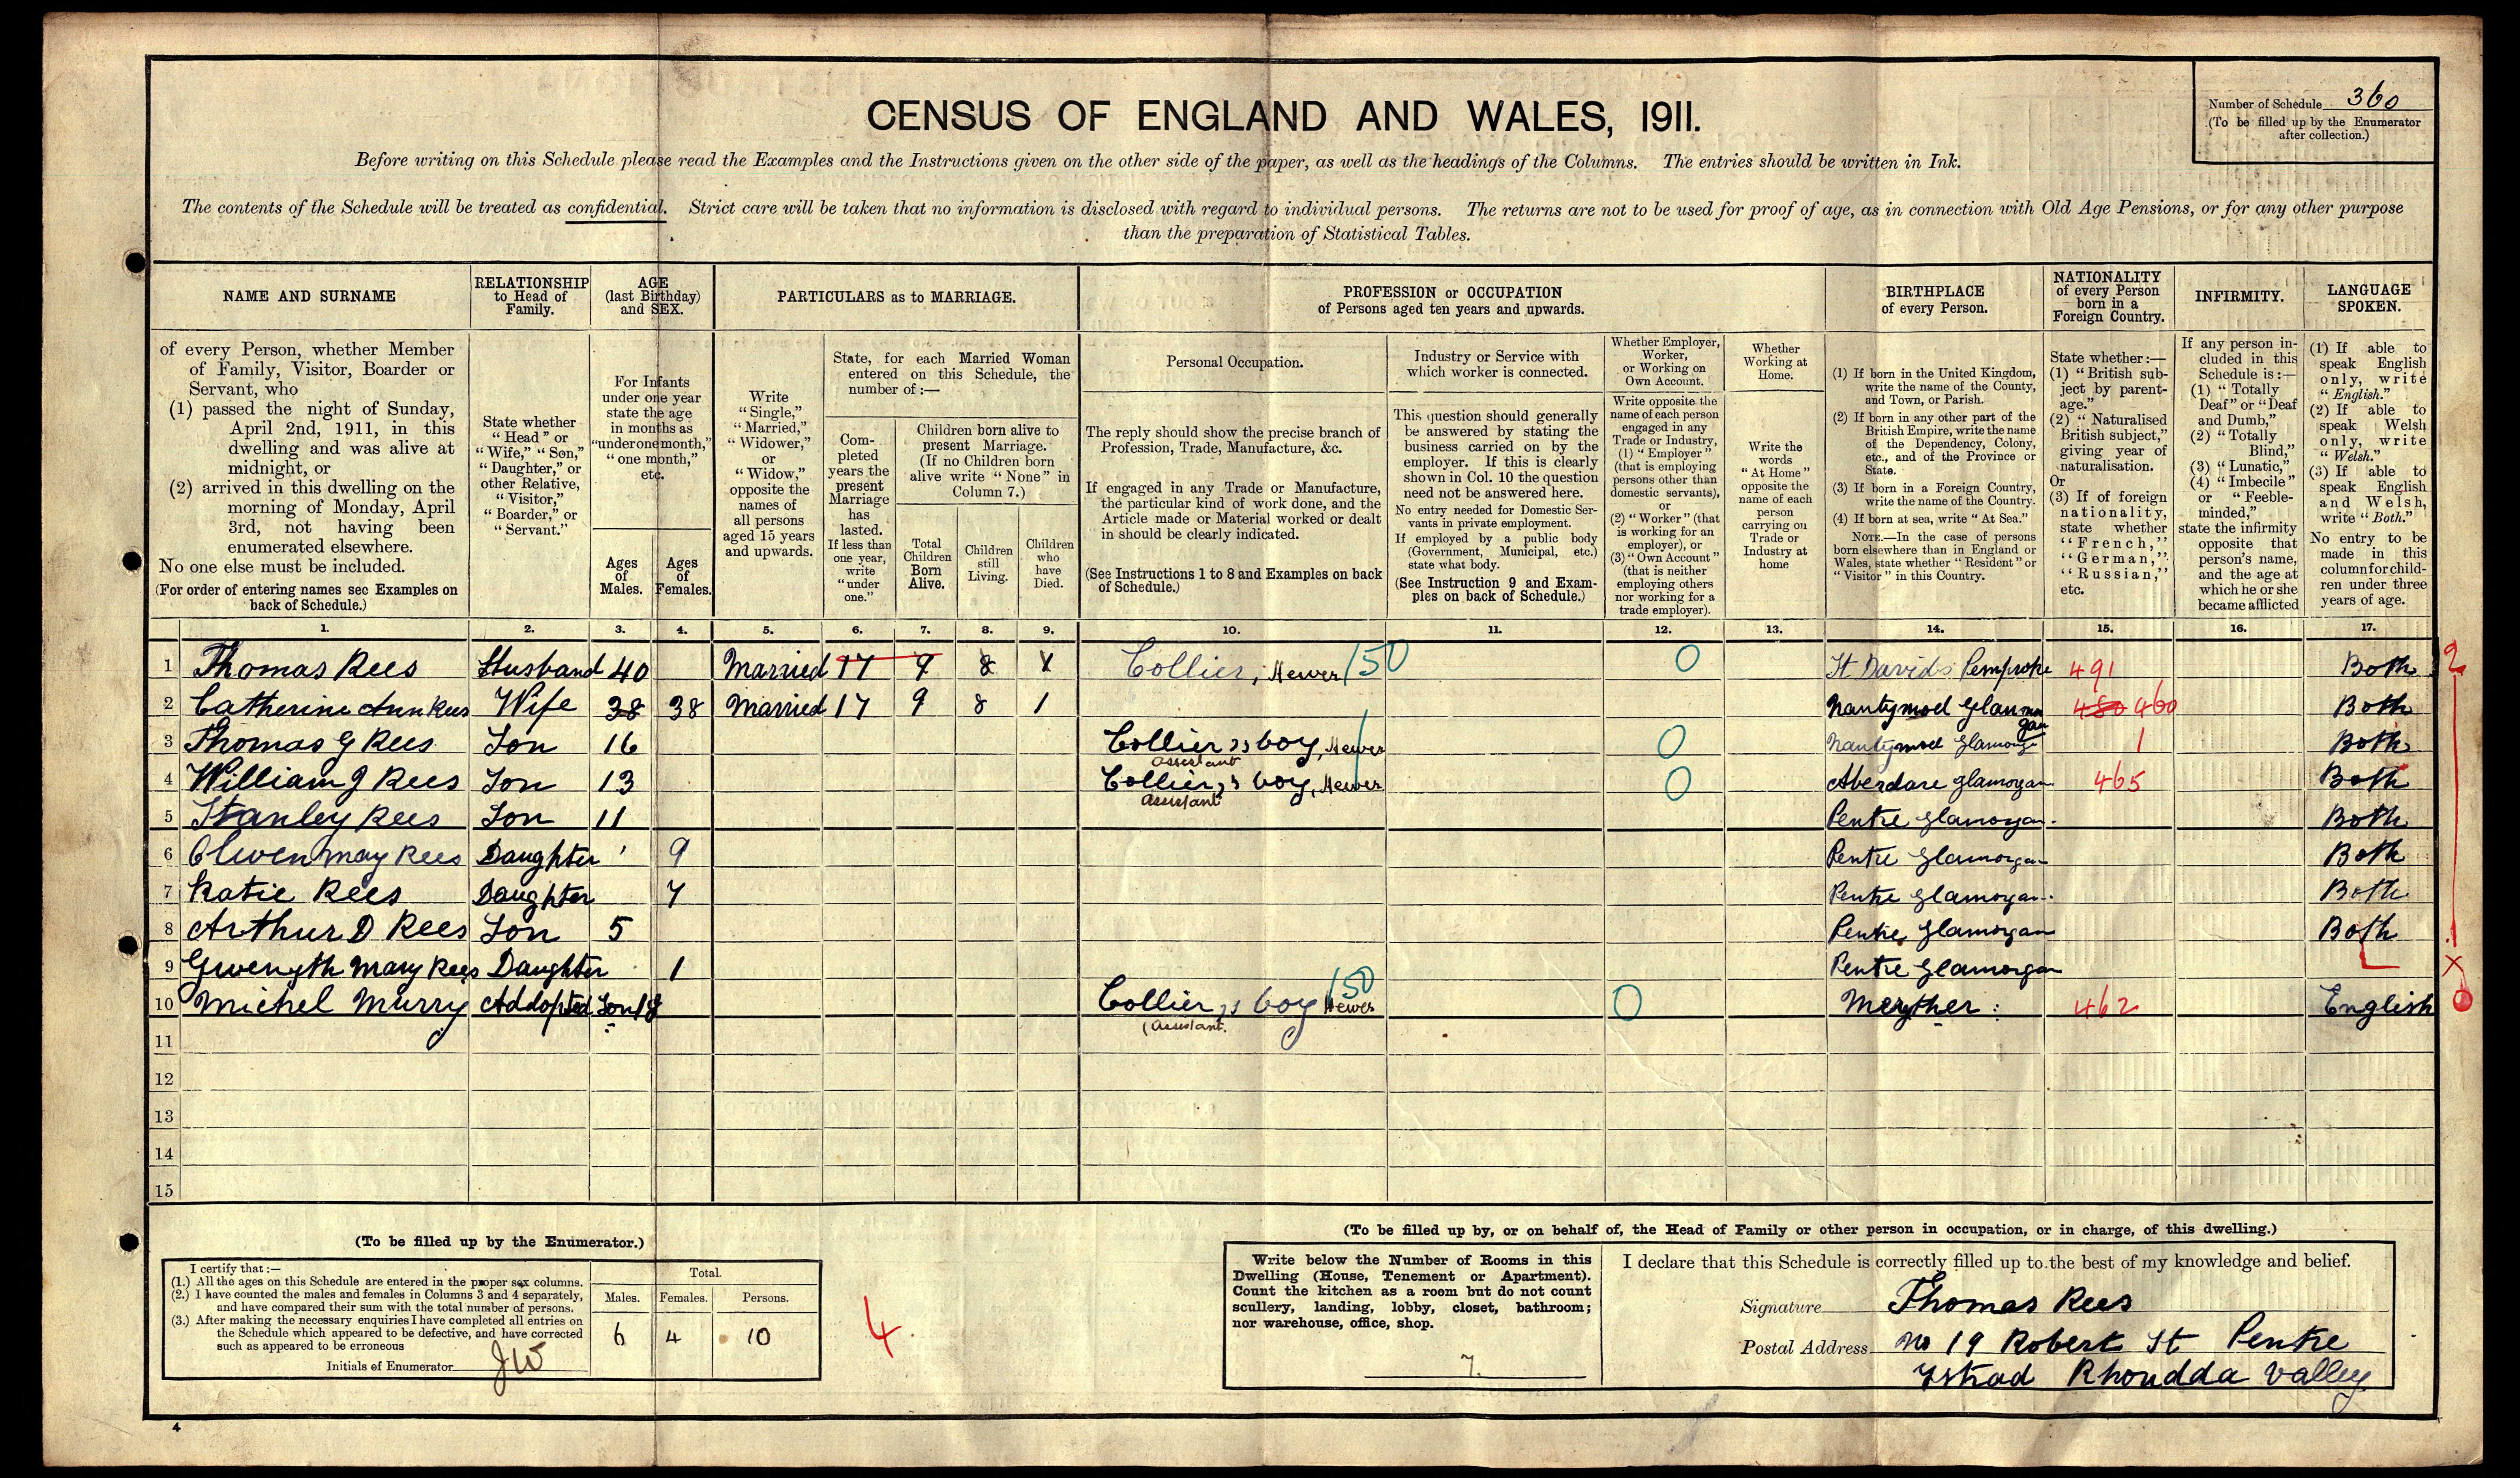 CENSUS OF ENGLAND AND WALES, 1911.
Number of Schedule 360
(To be filled up by the Enumerator
after collection.)
Before writing on this Schedule please read the Examples and the Instructions given on the other side of the paper, as well as the headings of the Columns. The entries should be written in Ink.
The contents of the Schedule will be treated as confidential. Strict care will be taken that no information is disclosed with regard to individual persons. The returns are not to be used for proof of age, as in connection with Old Age Pensions, or for any other purpose
than the preparation of Statistical Tables.
NAME AND SURNAME
of every Person, whether Member
of Family, Visitor, Boarder or
Servant, who
(1) passed the night of Sunday,
April 2nd, 1911, in this
dwelling and was alive at
midnight, or
(2) arrived in this dwelling on the
morning of Monday, April
3rd, not having been
enumerated elsewhere.
No one else must be included.
(For order of entering names see Examples on
back of Schedule.)
RELATIONSHIP
to Head of
Family.
State whether
"Head" or
"Wife," "Son,"
"Daughter," or
other Relative,
"Visitor,"
"Boarder," or
"Servant."
AGE
(last Birthday)
and SEX.
For Infants
under one year
state the age
in months as
"under one month,"
"one month,"
etc.
Ages
of
Males.
Ages
of
Females.
PARTICULARS as to MARRIAGE.
Write
"Single,"
"Married,"
"Widower,"
or
"Widow,"
opposite the
names of
all persons
aged 15 years
and upwards.
State, for each Married Woman
entered on this Schedule, the
number of :—
Com-
pleted
years the
present
Marriage
has
lasted.
If less than
one year,
write
"under
one."
Children born alive to
present Marriage.
(If no Children born
alive write "None" in
Column 7.)
Total
Children
Born
Alive.
Children
still
Living.
Children
who
have
Died.
PROFESSION or OCCUPATION
of Persons aged ten years and upwards.
Personal Occupation.
The reply should show the precise branch of
Profession, Trade, Manufacture, &c.
If engaged in any Trade or Manufacture,
the particular kind of work done, and the
Article made or Material worked or dealt
in should be clearly indicated.
(See Instructions 1 to 8 and Examples on back
of Schedule.)
Industry or Service with
which worker is connected.
This question should generally
be answered by stating the
business carried on by the
employer. If this is clearly
shown in Col. 10 the question
need not be answered here.
No entry needed for Domestic Ser-
vants in private employment.
If employed by a public body
(Government, Municipal, etc.)
state what body.
(See Instruction 9 and Exam-
ples on back of Schedule.)
Whether Employer,
Worker,
or Working on
Own Account.
Write opposite the
name of each person
engaged in any
Trade or Industry,
(1) "Employer"
(that is employing
persons other than
domestic servants),
or
(2) "Worker" (that
is working for an
employer), or
(3) "Own Account"
(that is neither
employing others
nor working for a
trade employer).
Whether
Working at
Home.
Write the
words
"At Home"
opposite the
name of each
person
carrying on
Trade or
Industry at
home
BIRTHPLACE
of every Person.
(1) If born in the United Kingdom,
write the name of the County,
and Town, or Parish.
(2) If born in any other part of the
British Empire, write the name
of the Dependency, Colony,
etc., and of the Province or
State.
(3) If born in a Foreign Country,
write the name of the Country.
(4) If born at sea, write "At Sea."
NOTE.—In the case of persons
born elsewhere than in England or
Wales, state whether "Resident" or
"Visitor" in this Country.
NATIONALITY
of every Person
born in a
Foreign Country.
State whether :—
(1) "British sub-
ject by parent-
age."
(2) "Naturalised
British subject,"
giving year of
naturalisation.
Or
(3) If of foreign
nationality,
state whether
"French,"
"German,"
"Russian,"
etc.
INFIRMITY.
If any person in-
cluded in this
Schedule is :—
(1) "Totally
Deaf" or "Deaf
and Dumb,"
(2) "Totally
Blind,"
(3) "Lunatic,"
(4) "Imbecile"
or "Feeble-
minded,"
state the infirmity
opposite that
person's name,
and the age at
which he or she
became afflicted
LANGUAGE
SPOKEN.
(1) If able to
speak English
only, write
"English."
(2) If able to
speak Welsh
only, write
"Welsh."
(3) If able to
speak English
and Welsh,
write "Both."
No entry to be
made in this
column for child-
ren under three
years of age.
1. 2. 3. 4. 5. 6. 7. 8. 9. 10. 11. 12. 13. 14. 15. 16. 17.
1 Thomas Rees Husband 40 Married 17 9 8 1 Collier, Hewer 150 0 St Davids Pemproke 491 Both
2 Catherine Ann Rees Wife 38 38 Married 17 9 8 1 Nantymoel Glamorgan 480 460 Both
3 Thomas G Rees Son 16 Collier,s boy, Hewer assistant 0 Nantymoel Glamorgan 1 Both
4 William J Rees Son 13 Collier,s boy, Hewer assistant 0 Aberdare Glamorgan 465 Both
5 Stanley Rees Son 11 Pentre Glamorgan Both
6 Olwen May Rees Daughter 9 Pentre Glamorgan Both
7 Katie Rees Daughter 7 Pentre Glamorgan Both
8 Arthur D Rees Son 5 Pentre Glamorgan Both
9 Gwenyth Mary Rees Daughter 1 Pentre Glamorgan
10 Michel Murry Addopted Son 18 Collier,s boy Hewer 150 (Assistant. 0 Meryther : 462 English
11
12
13
14
15
(To be filled up by the Enumerator.)
I certify that :—
(1.) All the ages on this Schedule are entered in the proper sex columns.
(2.) I have counted the males and females in Columns 3 and 4 separately,
and have compared their sum with the total number of persons.
(3.) After making the necessary enquiries I have completed all entries on
the Schedule which appeared to be defective, and have corrected
such as appeared to be erroneous
Initials of Enumerator JW
Total.
Males. Females. Persons.
6 4 10
4
(To be filled up by, or on behalf of, the Head of Family or other person in occupation, or in charge, of this dwelling.)
Write below the Number of Rooms in this
Dwelling (House, Tenement or Apartment).
Count the kitchen as a room but do not count
scullery, landing, lobby, closet, bathroom;
nor warehouse, office, shop.
7.
I declare that this Schedule is correctly filled up to the best of my knowledge and belief.
Signature Thomas Rees
Postal Address No 19 Robert St Pentre
Ystrad Rhondda Valley
4